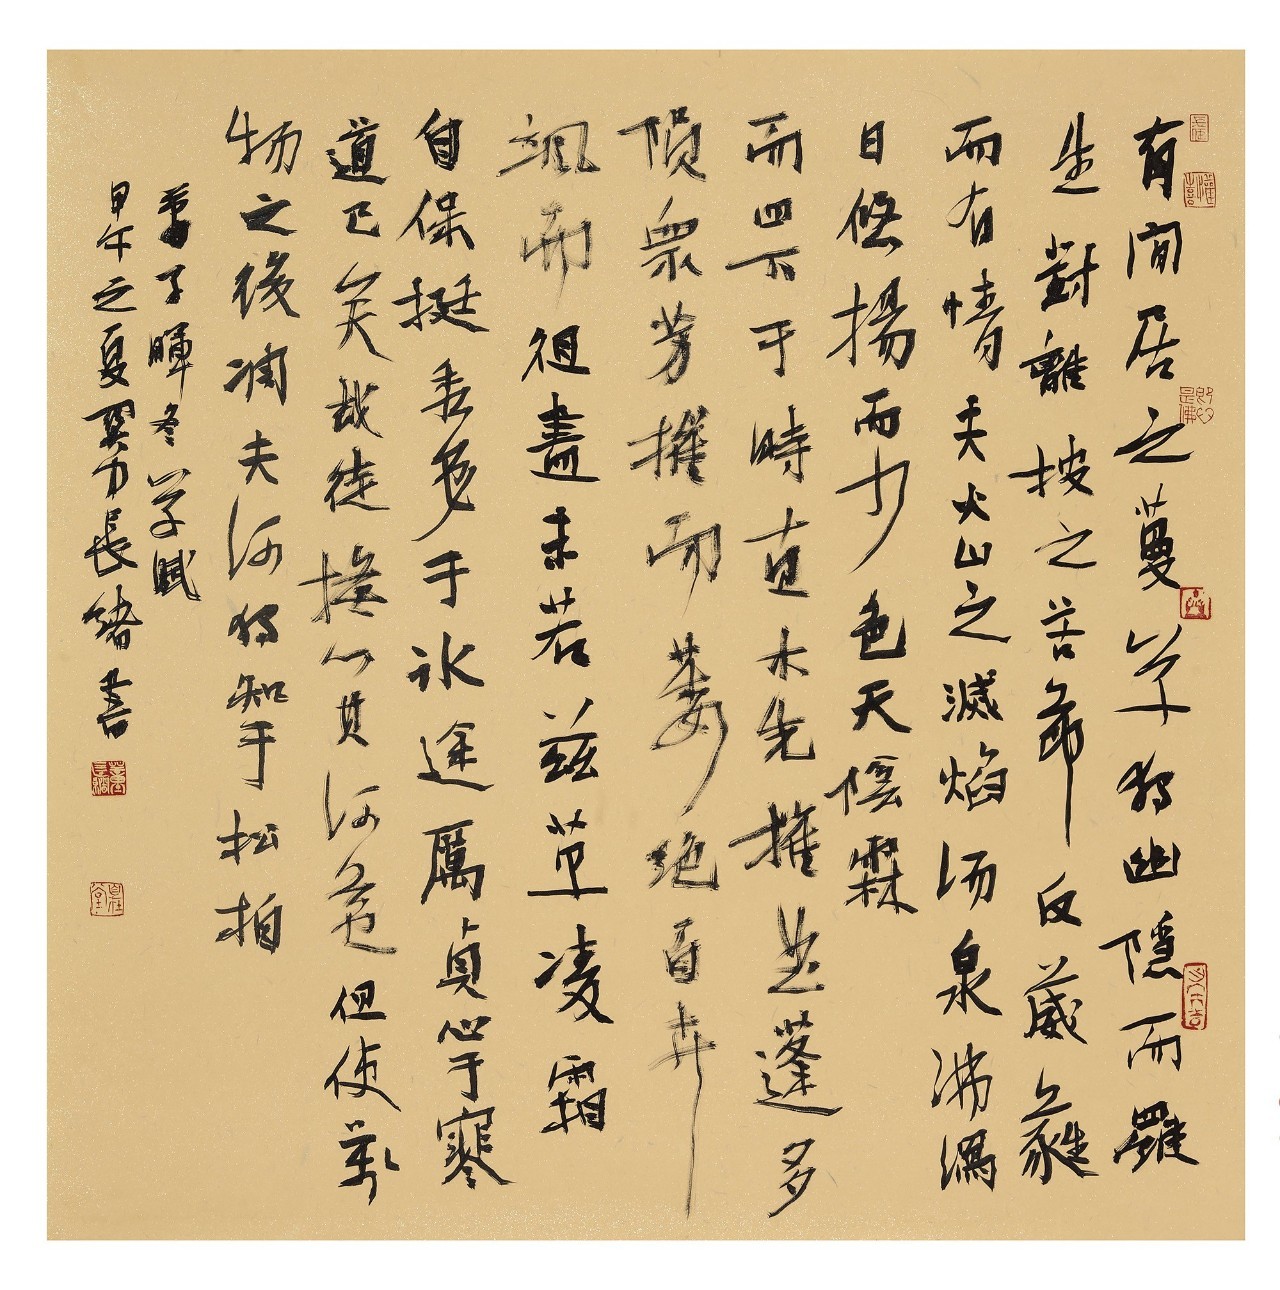 有間居之蔓草獨幽隱而羅
生對離披之苦節反葳蕤
而有情夫火山之滅焰湯泉沸瀉
日悠揚而少色天陰霖
而四下于時直木先摧叢蓬多
隕眾芳摧而萎絕百卉
颯而徂盡未若茲草凌霜
自保挺秀色于冰途厲貞心于寒
道已矣哉徒撫心其何益但使萬
物之後凋夫何獨知于松柏
蕭子暉冬草賦
甲午之夏長緒書